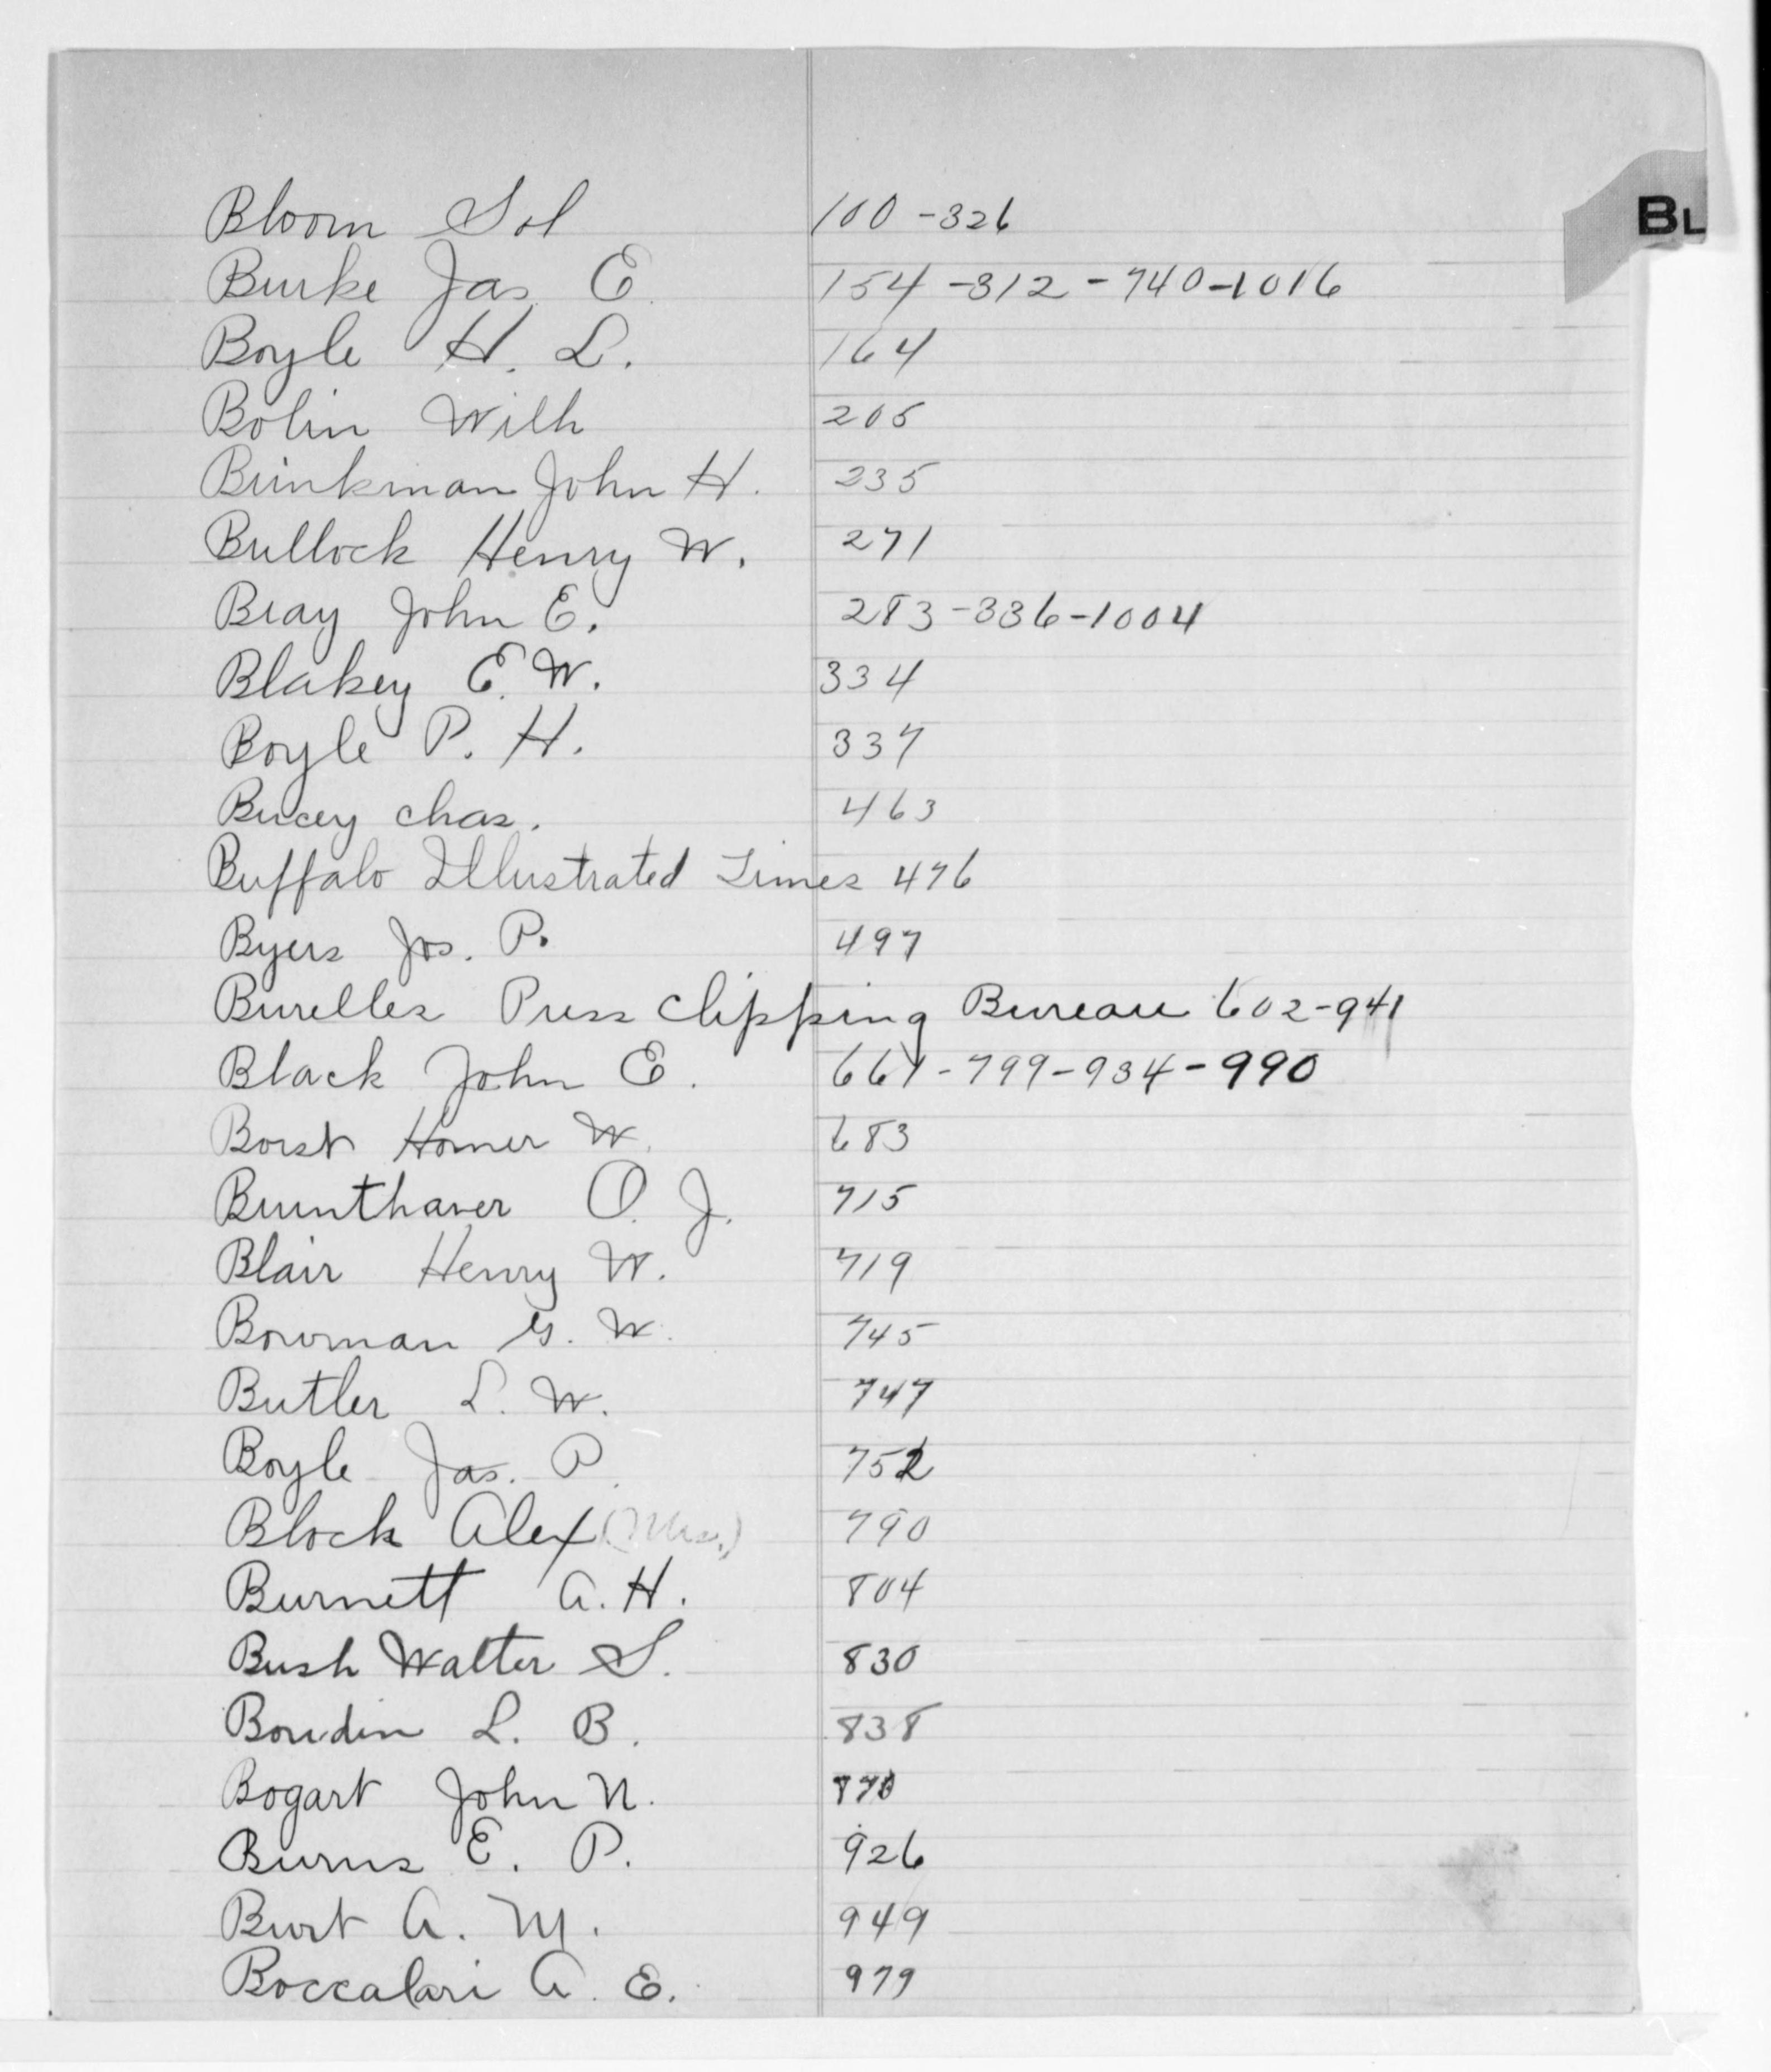 BL
Bloom Sol 100-326
Burke Jas. E. 154-312-740-1016
Boyle H. L. 164
Bolin Wilh 205
Brinkman John H. 235
Bullock Henry W. 271
Bray John E. 283-336-1004
Blakey E. W. 334
Boyle P. H. 337
Bucey Chas. 463
Buffalo Illustrated Times 476
Byers Jos. P. 497
Burelles Press Clipping Bureau 602-941
Black John E. 661-799-934-990
Borst Homer W. 683
Brunthaver O. J. 715
Blair Henry W. 719
Bowman G. W. 745
Butler L. W. 747
Boyle Jas. P. 752
Block Alex (Mrs.) 790
Burnett A. H. 804
Bush Walter S. 830
Boudin L. B. 838
Bogart John N.
Burns E. P. 926
Burt A. M. 949
Boccalari A. E. 979